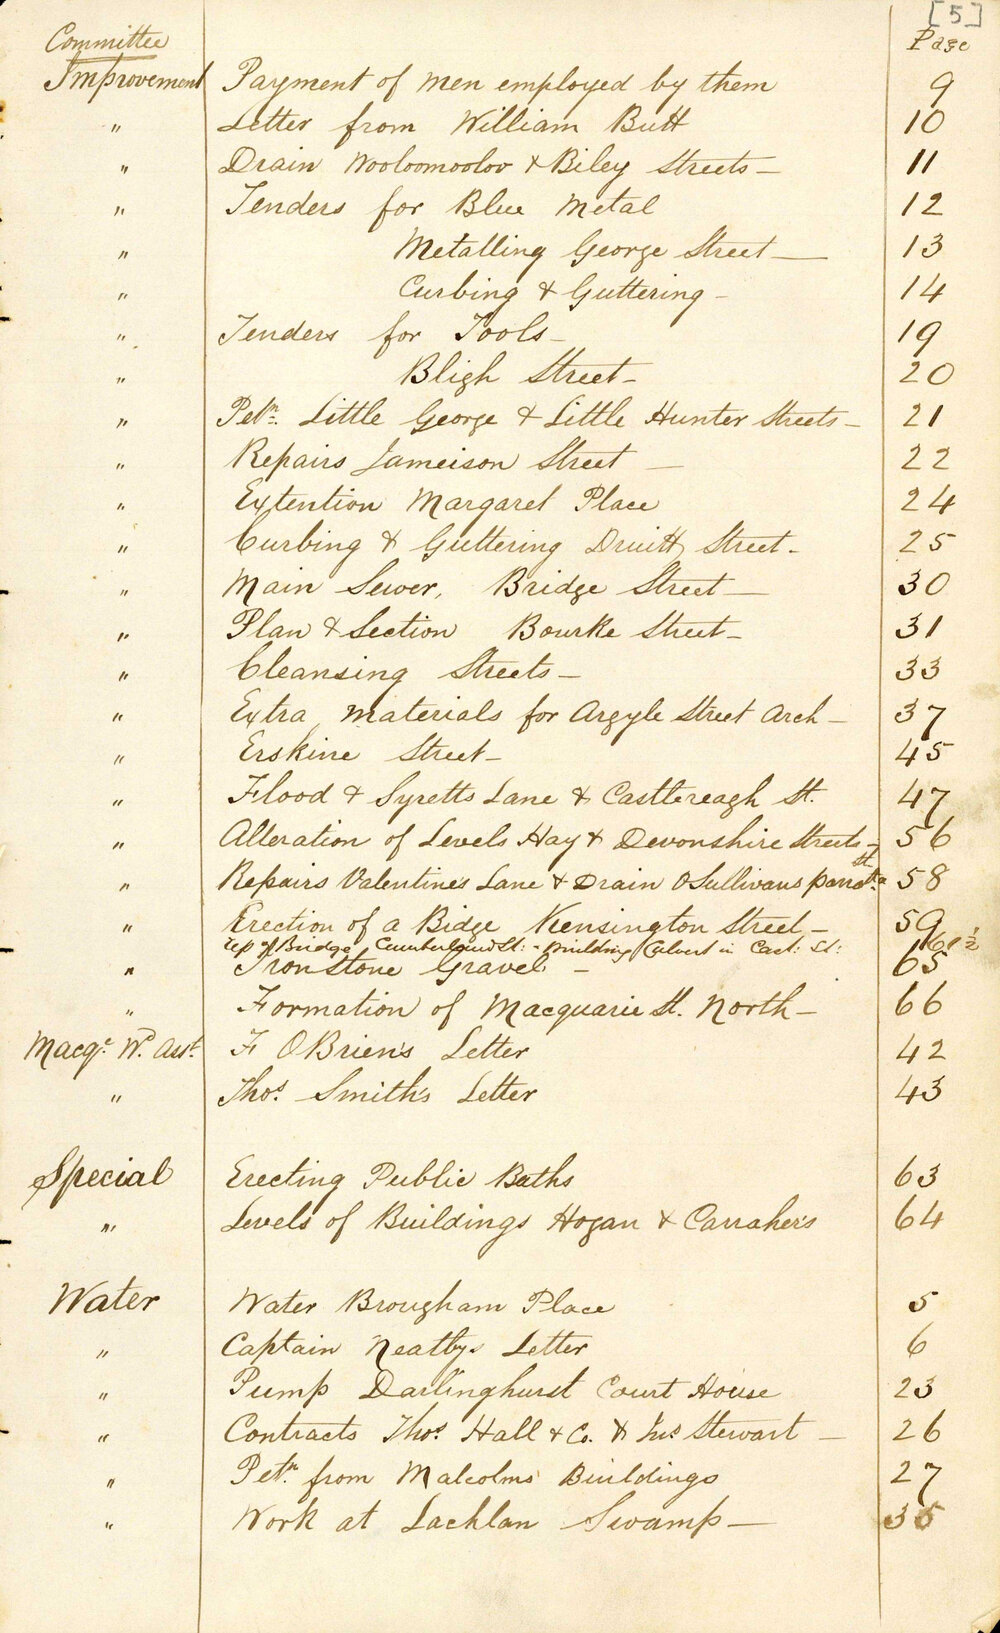 [5]
Committee Page
Improvement Payment of men employed by them 9
" Letter from William Butt 10
" Drain Wooloomooloo & Riley Streets - 11
" Tenders for Blue Metal 12
" Metalling George Street - 13
" Curbing & Guttering - 14
" Tenders for Tools - 19
" Bligh Street - 20
" Petn. Little George & Little Hunter Streets - 21
" Repairs Jameison Street - 22
" Extention Margaret Place 24
" Curbing & Guttering Druitt Street - 25
" Main Sewer, Bridge Street - 30
" Plan & Section Bourke Street - 31
" Cleansing Streets - 33
" Extra materials for Argyle Street Arch - 37
" Erskine Street - 45
" Flood & Syretts Lane & Castlereagh St. 47
" Alteration of Levels Hay & Devonshire Streets - 56
" Repairs Valentines Lane & Drain O'Sullivans Parrtta St. 58
" Erection of a Bidge Kensington Street - 59
Rep of Bridge Cumberland St: - Building Culvert in Cast: St: 61 1/2
" Iron Stone Gravel - 65
" Formation of Macquarie St. North - 66
Macqe. Wd. Asst. F O'Brien's Letter 42
" Thos. Smith's Letter 43
Special Erecting Public Baths 63
" Levels of Buildings Hogan & Carraher's 64
Water Water Brougham Place 5
" Captain Neatbys Letter 6
" Pump Darlinghurst Court House 23
" Contracts Thos. Hall & Co. & Jno. Stewart - 26
" Petn. from Malcolms Buildings 27
" Work at Lachlan Swamp - 35